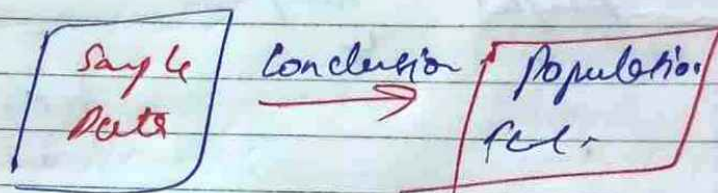 Sample
Data
Conclusion
Population